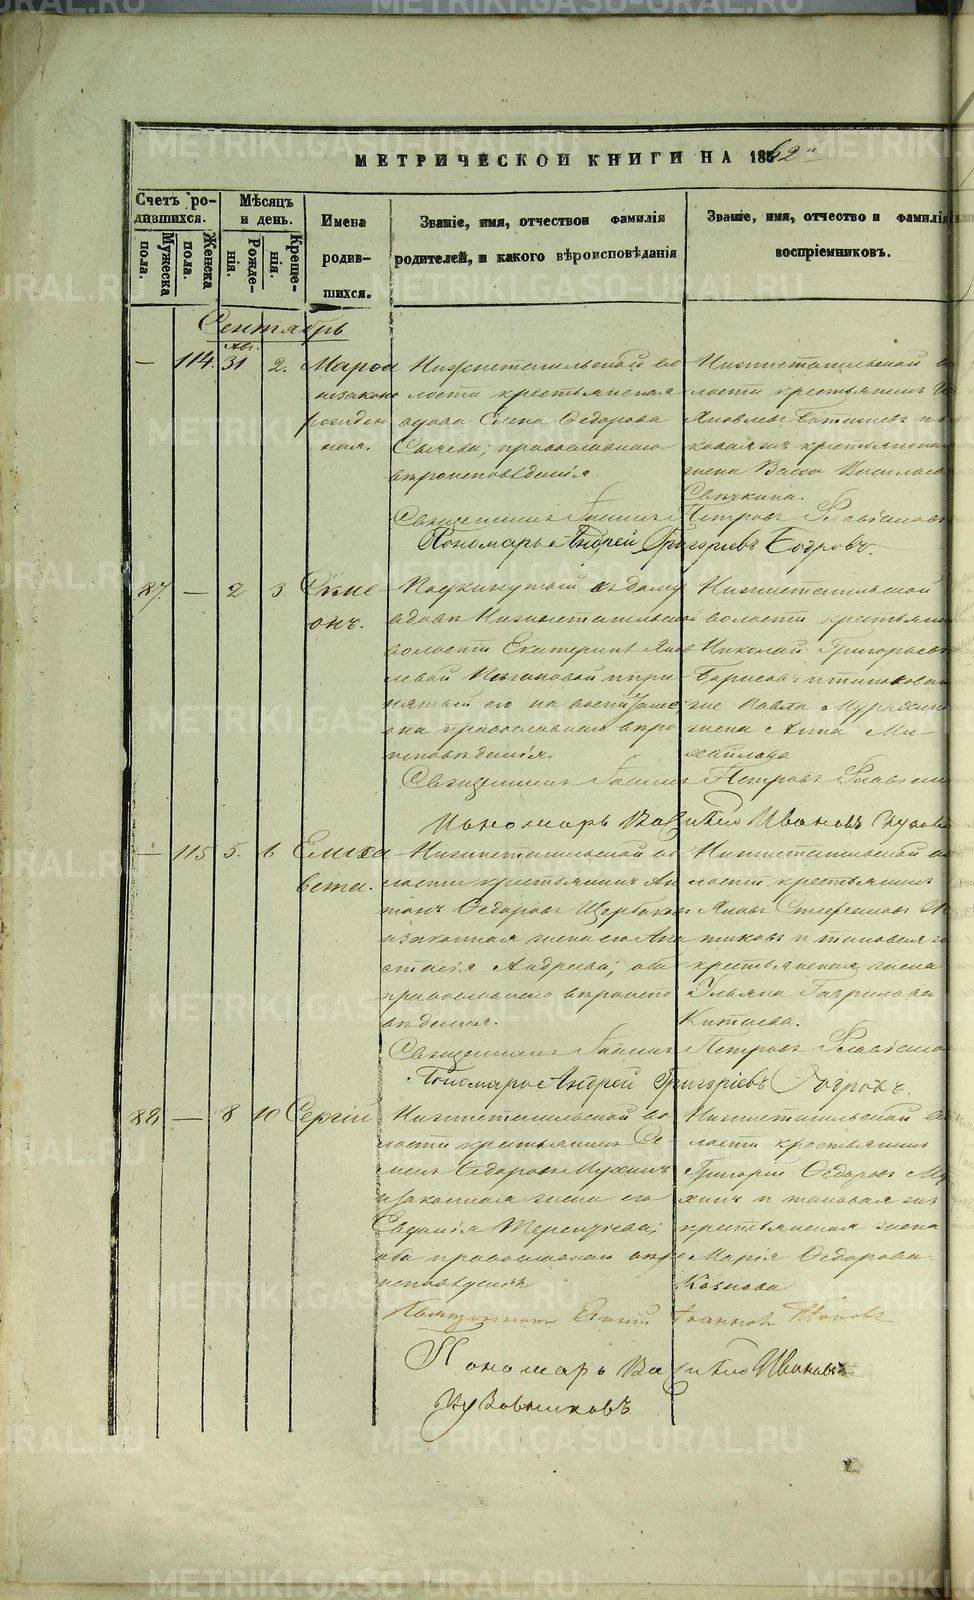 МЕТРИЧЕСКОЙ КНИГИ НА 1862й
Счетъ ро-
дившихся.
Мужеска
пола.
Женска
пола.
Мѣсяцъ
и день.
Рожде-
нія.
Креще-
нія.
Имена
родив-
шихся.
Званіе, имя, отчествои фамилія
родителей, и какого вѣроисповѣданія
Званіе, имя, отчество и фамилія
воспріемниковъ.
Сентябрь
Авг.
— 114. 31 2.
незаконо
рожден
ная.
Нижнетагильской во
лости крестьянская
вдова Елена Ѳедорова
православнаго
вѣроисповѣданія.
Нижнетагильской во
лости крестьянинъ
Яковлевъ
крестьянская
жена Васса Васильева
Священникъ Іоаннъ Петровъ
Пономарь Андрей Григорьевъ Бобровъ.
87. — 2 3 Симе
онъ.
Подкинутый къ дому
вдовы Нижнетагильской
волости Екатерины Яков
левой и при
нятый ею на воспитаніе
она православнаго вѣро
исповѣданія.
Нижнетагильской
волости крестьянинъ
Николай Григорьевъ
Борисовъ и таковой
же Павла
жена Анна Ми-
хайлова
Священникъ Іоаннъ Петровъ
Пономарь Василій Ивановъ
— 115 5. 6 Елиза
вета.
Нижнетагильской во
лости крестьянинъ Ан
тонъ Ѳедоровъ Щербаковъ
и законная жена его Ана
стасія Андреева, оба
православнаго вѣроиспо
вѣданія.
Нижнетагильской во
лости крестьянинъ
Яковъ Стефановъ
и таковая же
крестьянская жена
Ульяна Гаврилова
Китаева.
Священникъ Іоаннъ Петровъ
Пономарь Андрей Григорьевъ Бобровъ.
88 — 8 10 Сергій
Нижнетагильской во
лости крестьянинъ Се-
менъ Ѳедоровъ Мухинъ
и законная жена его
Евдокія Терентьева;
оба православнаго вѣро
исповѣданія
Нижнетагильской во
лости крестьянинъ
Григорій Ѳедоровъ Му
хинъ и таковая же
крестьянская жена
Марія Ѳедорова
Священникъ Іоанновъ Поповъ
Пономарь Василій Ивановъ
METRIKI.GASO-URAL.RU